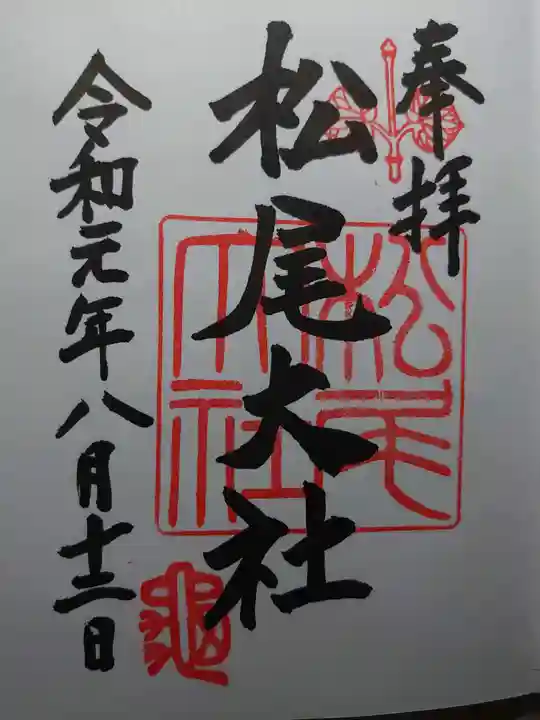 奉拝
松尾大社
松尾大社
令和元年八月十三日
亀